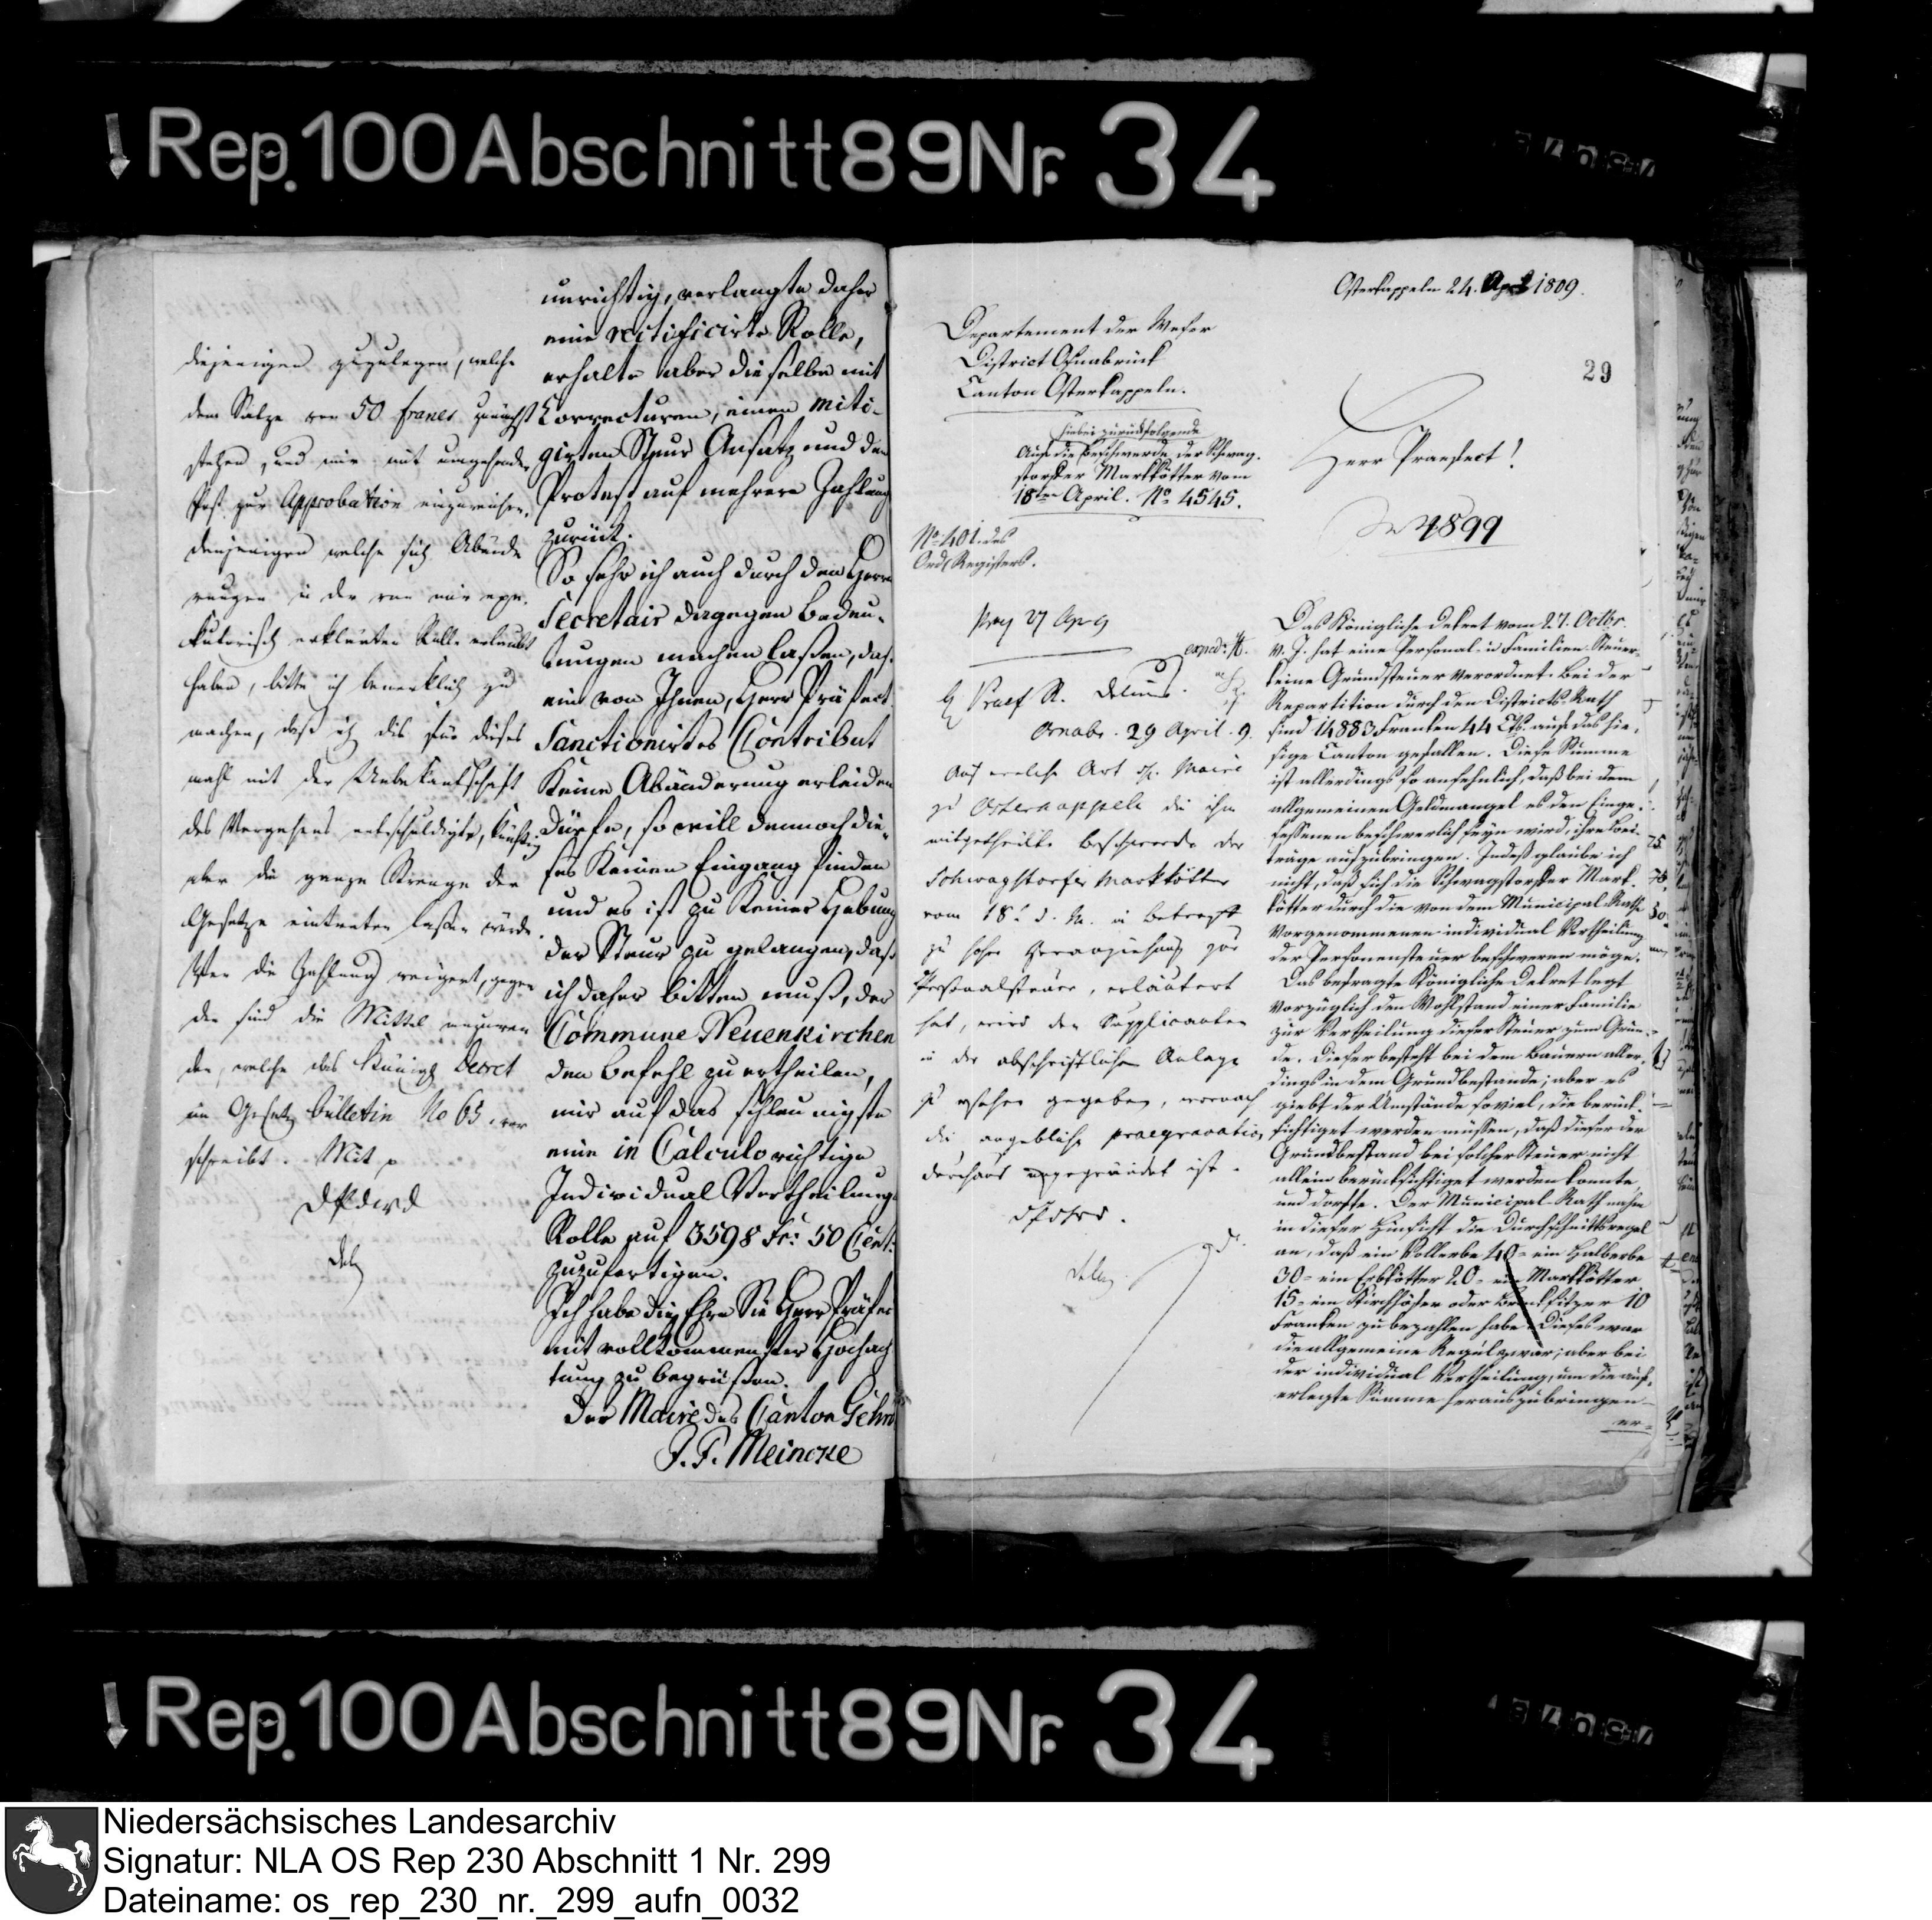 Rep. 100 Abschnitt 89 Nr. 34
diejenigen zuzulegen, welche
dem Satze von 50 francs zunächst
stehen, und mir mit umgehender
Post zur Approbation einzureichen.
Denjenigen welche sich Abände
rungen in der von mir exe-
kutorisch erklärten Rolle erlaubt
haben, bitte ich bemerklich zu
machen, daß ich dis für dieses
mahl mit der Unbekantschaft
des Vergehens entschuldigte, künftig
aber die ganze Strenge der
Gesetze eintreten lassen würde.
Wer die Zahlung weigert, gegen
den sind die Mittel anzuwen
den, welche das Königl Decret
im Gesetz bülletin No 65 vor
schreibt. Mit
unrichtig, verlangte daher
eine rectificirte Rolle,
erhalte aber dieselbe mit
Correcturen, einen miti-
girten Steur Ansatz und den
Protest auf mehrere Zahlung
zurück.
So sehr ich auch durch den Herrn
Secretair dagegen Bedeu-
tungen machen laßen, daß
ein von Ihnen, Herr Präfect
Sanctionirtes Contribut
Keine Abänderung erleiden
Dürfe, so will dennoch die-
ses Keinen Eingang finden
und es ist zu Keiner Hebung
der Steur zu gelangen, daß
ich daher bitten muß, der
Commune Neuenkirchen
den Befehl zu ertheilen,
mir auf das schleunigste
eine in Calculo richtige
Individual Vertheilungs
Rolle auf 3598 Fr: 50 Cent:
zuzufertigen.
Ich habe die Ehre Sie Herr Präfect
mit vollkommenster Hochach
tung zu begrüßen.
Der Maire des Canton Gehrd
J. F. Meincke
Ostercappeln 24. April 1809.
29
Departement der Weser
District Osnabrück
Canton Ostercappeln.
hiebei zurückfolgende
Auf die Beschwerde der Schwag-
storfer Markkötter vom
18ten April. No 4545.
No 401. des
Ord. Registers.
Herr Praefect!
4899
27 Apr 9
Osnabr. 29 April. 9.
Auf welche Art Hr. Maire
zu Ostercappeln die ihm
mitgetheilte Beschwerde der
Schwagstorfer Markkötter
vom 18t d. M. in betreff
zu hoher Heranziehung zur
Personalsteuer, erläutert
hat, wird den Supplicanten
in der abschriftlichen Anlage
zu ersehen gegeben, wornach
die angebliche praegravation
durchaus ungegründet ist.
Das Königliche Dekret vom 27. Octbr.
v. J. hat eine Personal- u Familien-Steuer-
keine Grundsteuer verordnet. Bei der
Repartition durch den Districts-Rath
sind 14883 Franken 44 Cts. auf das hie-
sige Canton gefallen. Diese Summe
ist allerdings so ansehnlich, daß bei dem
allgemeinen Geldmangel es den Einge-
sessenen beschwerlich seyn wird, ihre Bei-
träge aufzubringen. Indeß glaube ich
nicht, daß sich die Schwagstorfer Mark-
kötter durch die von dem Municipal-Rathe
vorgenommenen individual Vertheilung
der Personensteuer beschweren möge.
Das besagte Königliche Dekret legt
vorzüglich den Wohlstand einer Familie
zur Vertheilung dieser Steuer zum Grun-
de. Dieser besteht bei dem Bauern aller-
dings in dem Grundbestande; aber es
giebt der Umstände so viel, die berück-
sichtiget werden müssen, daß dieser der
Grundbestand bei solcher Steuer nicht
allein berücksichtiget werden konnte
und dorfte. Der Municipal-Rath nahm
in dieser Hinsicht die Durchschnittsregel
an, daß ein Vollerbe 40- ein Halberbe
30- ein Erbkötter 20- ein Markkötter
15- ein Kirchhöfer oder Brinksitzer 10
Franken zu bezahlen habe. Dieses war
die allgemeine Regul zwar; aber bei
der individual Vertheilung, um die auf-
erlegte Summe herauszubringen-
er-
Rep. 100 Abschnitt 89 Nr. 34
Niedersächsisches Landesarchiv
Signatur: NLA OS Rep 230 Abschnitt 1 Nr. 299
Dateiname: os_rep_230_nr._299_aufn_0032